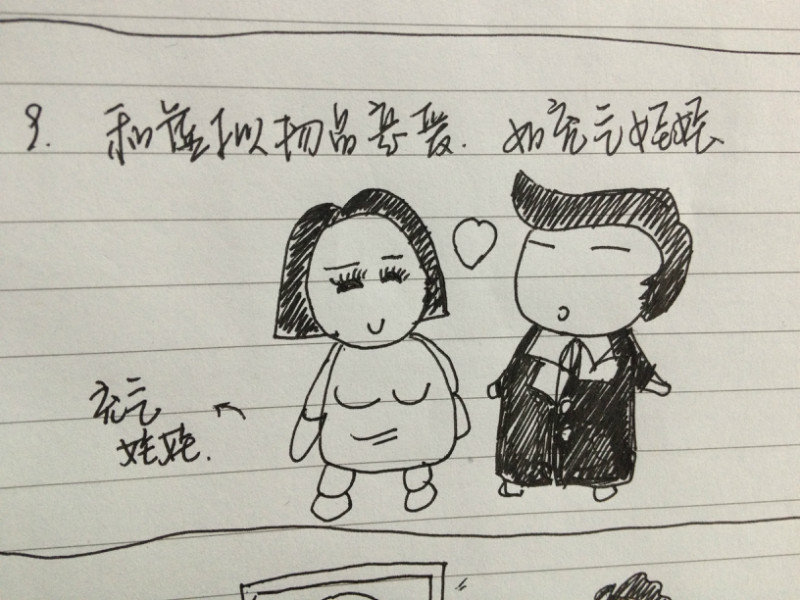 9. 和虚拟物品恋爱. 如充气娃娃.
充气
娃娃.